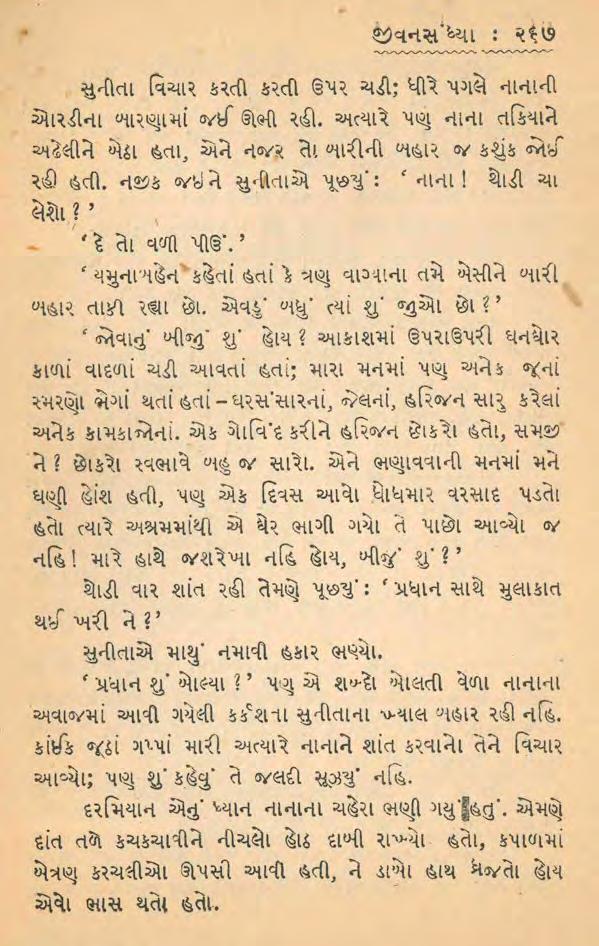 જીવનસંધ્યા : ૨૬૭
સુનીતા વિચાર કરતી કરતી ઉપર ચડી; ધીરે પગલે નાનાની
ઓરડીના બારણામાં જઈ ઊભી રહી. અત્યારે પણ નાના તકિયાને
અઢેલીને બેઠા હતા, એને નજર તો બારીની બહાર જ કશુંક જોઈ
રહી હતી. નજીક જઇને સુનીતાએ પૂછયું : ‘ નાના ! થોડી ચા
લેશો ? ’
‘ દે તો વળી પીઉં. ’
‘ યમુનાબહેન કહેતાં હતાં કે ત્રણ વાગ્યાના તમે બેસીને બારી
બહાર તાકી રહ્યા છો. એવડું બધું ત્યાં શું જુઓ છો ? ’
‘ જોવાનું બીજું શું હોય ? આકાશમાં ઉપરાઉપરી ઘનઘોર
કાળાં વાદળાં ચડી આવતાં હતાં; મારા મનમાં પણ અનેક જૂનાં
સ્મરણો ભેગાં થતાં હતાં – ઘરસંસારનાં, જેલનાં, હરિજન સારુ કરેલાં
અનેક કામકાજોનાં. એક ગોવિંદ કરીને હરિજન છોકરો હતો, સમજી
ને ? છોકરો સ્વભાવે બહુ જ સારો. એને ભણાવવાની મનમાં મને
ઘણી હોંશ હતી, પણ એક દિવસ આવો ધોધમાર વરસાદ પડતો
હતો ત્યારે અશ્રમમાંથી એ ઘેર ભાગી ગયો તે પાછો આવ્યો જ
નહિ ! મારે હાથે જશરેખા નહિ હોય, બીજું શું ? ’
થોડી વાર શાંત રહી તેમણે પૂછયું : ‘ પ્રધાન સાથે મુલાકાત
થઈ ખરી ને ? ’
સુનીતાએ માથું નમાવી હકાર ભણ્યો.
‘ પ્રધાન શું બોલ્યા ? ’ પણ એ શબ્દો બોલતી વેળા નાનાના
અવાજમાં આવી ગયેલી કર્કશતા સુનીતાના ખ્યાલ બહાર રહી નહિ.
કાંઈક જૂઠાં ગપ્પાં મારી અત્યારે નાનાને શાંત કરવાનો તેને વિચાર
આવ્યો; પણ શું કહેવું તે જલદી સૂઝયું નહિ.
દરમિયાન એનું ધ્યાન નાનાના ચહેરા ભણી ગયું હતું. એમણે
દાંત તળે કચકચાવીને નીચલો હોઠ દાબી રાખ્યો હતો, કપાળમાં
બેત્રણ કરચલીઓ ઊપસી આવી હતી, ને ડાબો હાથ ધ્રૂજતો હોય
એવો ભાસ થતો હતો.